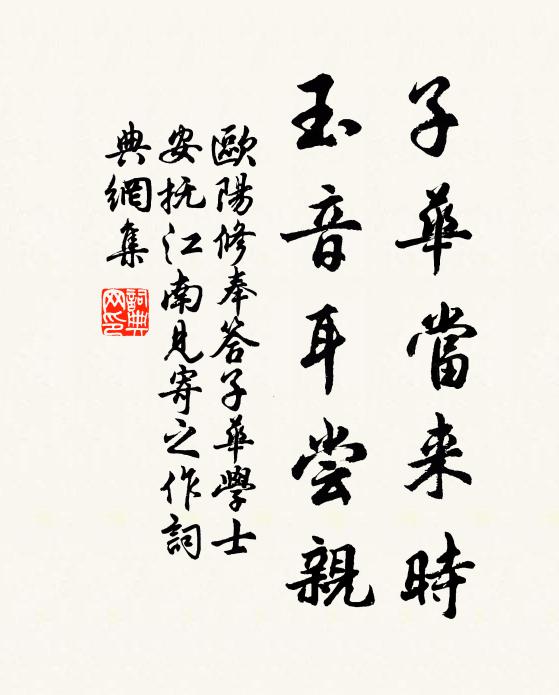 子華當来時
玉音耳尝親
歐陽修奉答子華學士
安抚江南見寄之作詞
典網集
詞典
网印